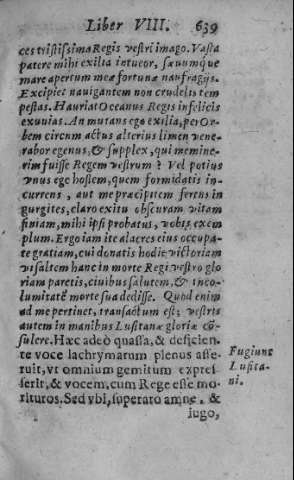 Liber VIII. 639
ces tristissima Regis vestri imago. Vasta
patere mihi exilia intueor, sæuumque
mare apertum meæ fortunæ naufragijs.
Excipiet nauigantem non crudelis tem
pestas. Hauriat Oceanus Regis infelicis
exuuias. An mutans ego exilia, per Or-
bem circum actus alterius limen vene-
rabor egenus, & supplex, qui memine-
rim fuisse Regem vestrum? Vel potius
vnus ego hostem, quem formidatis in-
currens, aut me præcipitem ferens in
gurgites, claro exitu obscuram vitam
finiam, mihi ipsi probatus, vobis exem
plum. Ergo iam ite alacres eius occupa-
te gratiam, cui donatis hodie victoriam
vt saltem hanc in morte Regi vestro glo
riam paretis, ciuibus salutem, & inco-
lumitatẽ morte sua dedisse. Quod enim
ad me pertinet, transactum est; vestris
autem in manibus Lusitanæ gloriæ cõ-
sulere. Hæc adeò quassa, & deficien-
te voce lachrymarum plenus asse-
ruit, vt omnium gemitum expres-
serit, & vocem, cum Rege esse mo-
rituros. Sed vbi, superato amne, &
iugo,
Fugiunt
Lusita-
ni.